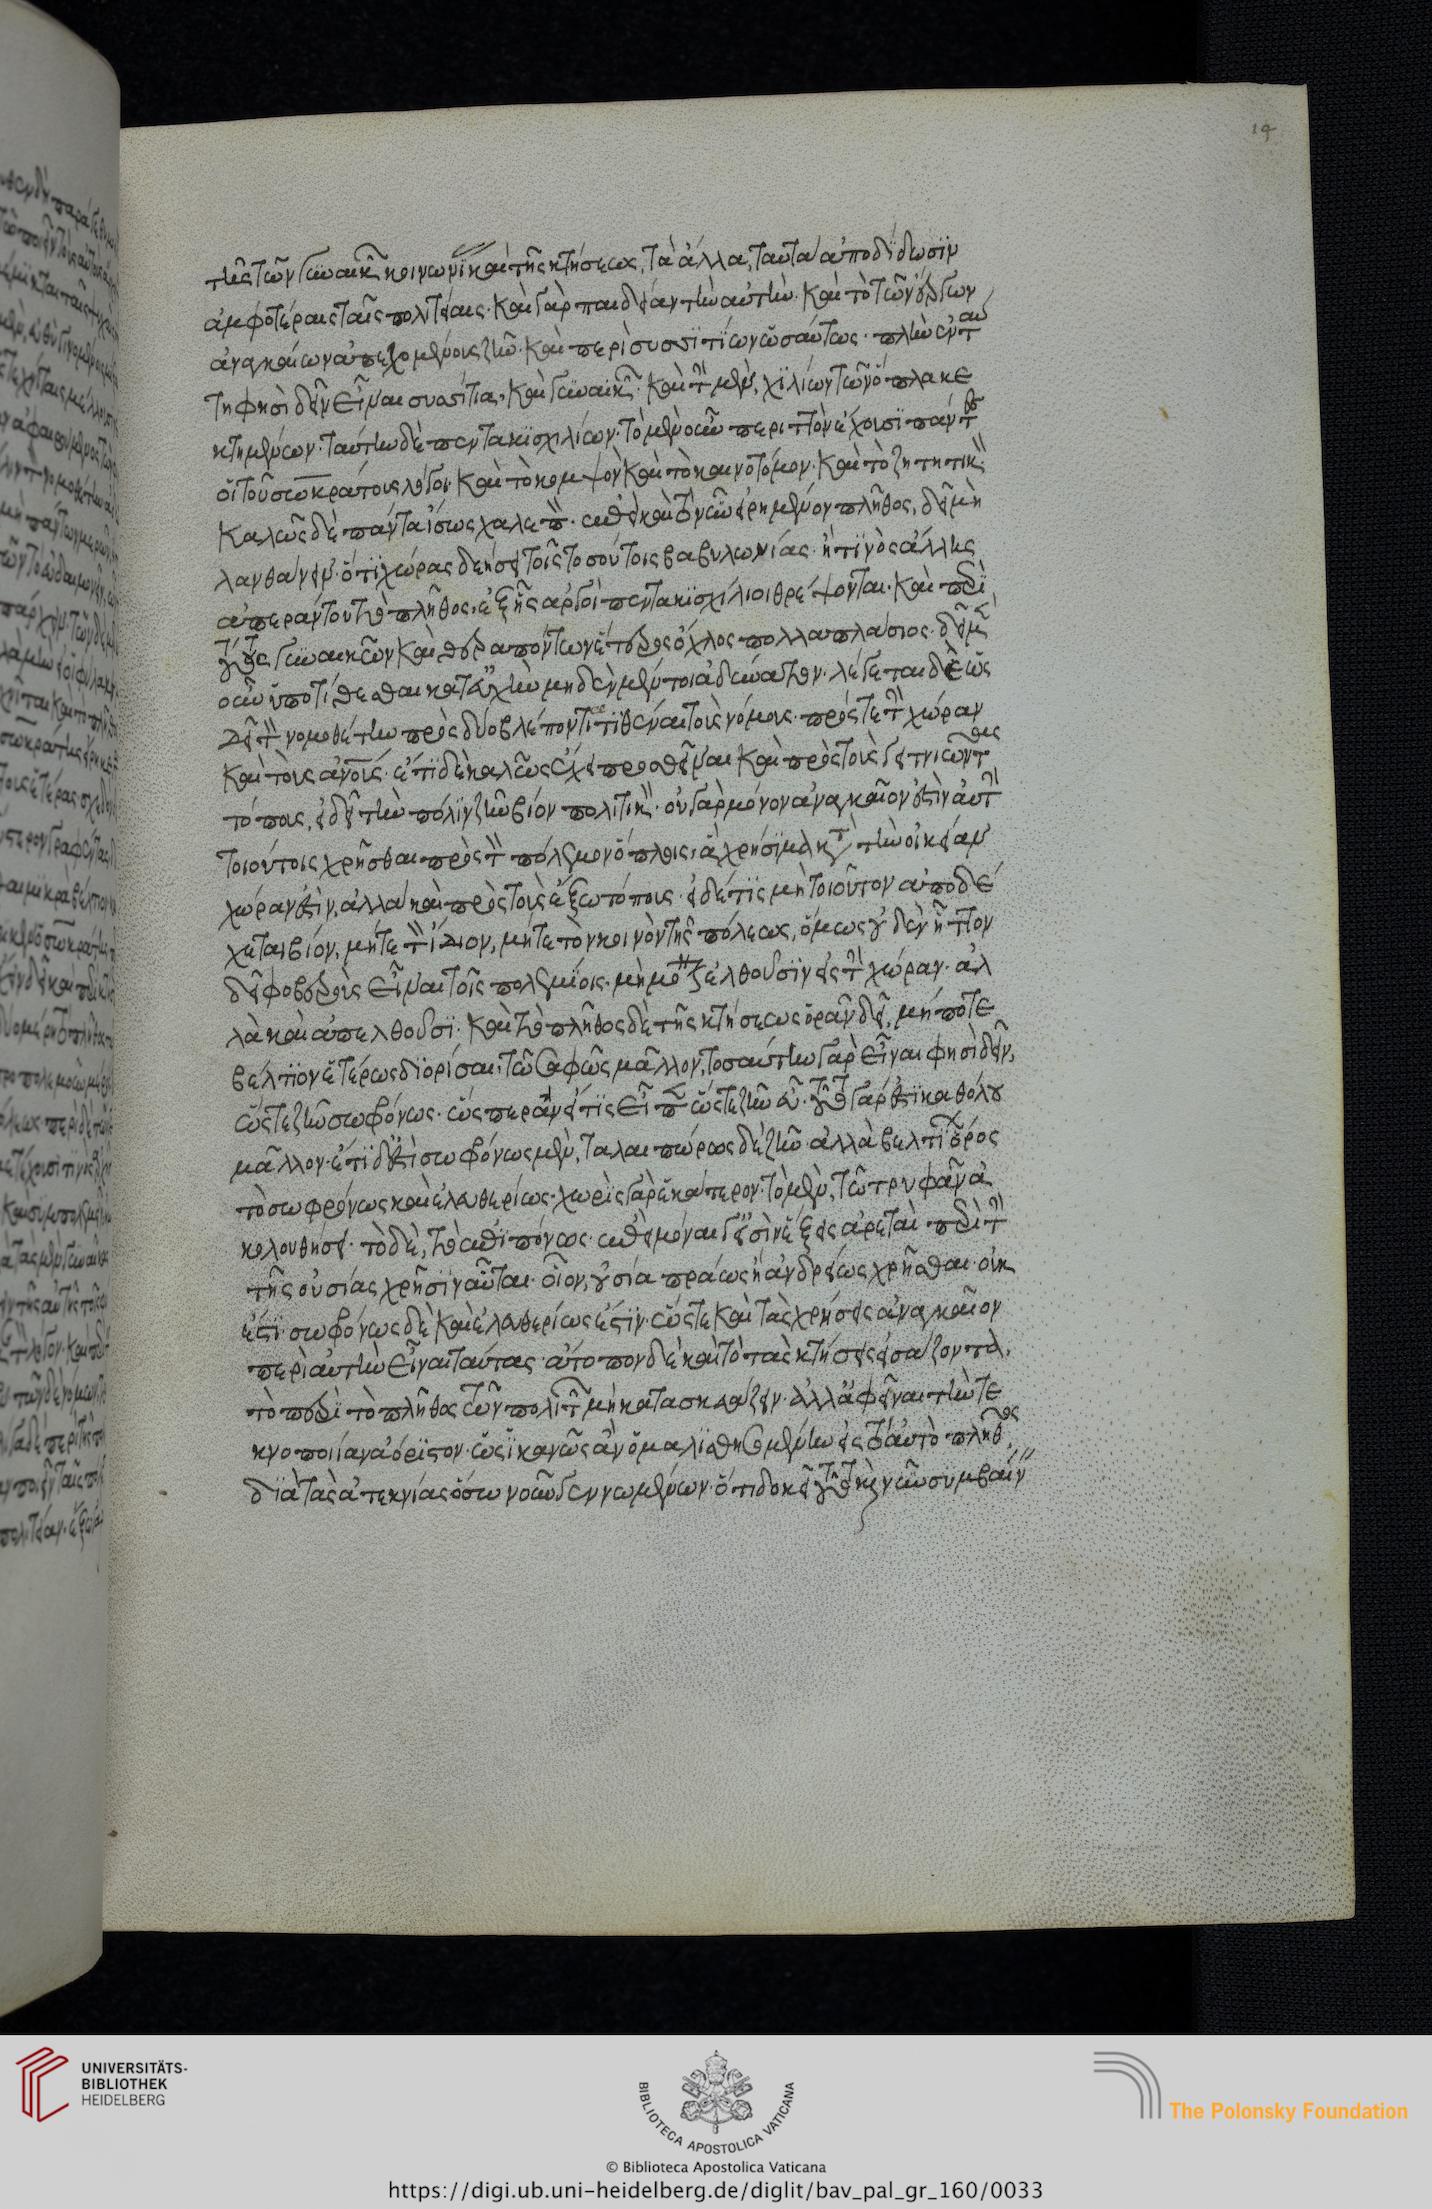 τῆς τῶν γυναικῶν κοινωνίας καὶ τῆς κτήσεως, τὰ ἄλλα, ταῦτα ἀποδίδωσιν
ἀμφοτέραις ταῖς πολιτείαις· καὶ γὰρ παιδείαν τὴν αὐτὴν· καὶ τὸ τῶν ἔργων
ἀναγκαίων ἀπεχομένους ζῆν· καὶ περὶ συσσιτίων ὡσαύτως· πλὴν ἐν ταύ
τῃ φησὶ δεῖν εἶναι συσσίτια, καὶ γυναικῶν· καὶ τὴν μὲν, χιλίων τῶν ὅπλα κε
κτημένων· ταύτην δὲ πεντακισχιλίων· τὸ μὲν οὖν περιττὸν ἔχουσι πάντες
οἱ τοῦ σωκράτους λόγοι καὶ τὸ κομψὸν καὶ τὸ καινοτόμον· καὶ τὸ ζητητικόν·
καλῶς δὲ πάντα ἴσως χαλεπόν· ἐπεὶ καὶ τὸ νῦν εἰρημένον πλῆθος, δεῖ μὴ
λανθάνειν· ὅτι χώρας δεήσει τοῖς τοσούτοις βαβυλωνίας· ἤ τινὸς ἄλλης
ἀπεράντου τὸ πλῆθος· ἐξ ἧς ἀργοὶ πεντακισχίλιοι θρέψονται· καὶ περὶ
τούτους γυναικῶν καὶ θεραπόντων ἕτερος ὄχλος πολλαπλάσιος· δεῖ μὲν
οὖν ὑποτίθεσθαι κατ' εὐχὴν μηδὲν μέντοι ἀδύνατον· λέγεται δὲ ὡς
δεῖ τὸν νομοθέτην πρὸς δύο βλέποντα τιθέναι τοὺς νόμους· πρός τε τὴν χώραν
καὶ τοὺς ἀνους· ἔτι δὲ καλῶς ἔχει προσθεῖναι καὶ πρὸς τοὺς γειτνιῶντας
τόπους, εἰ δεῖ τὴν πόλιν ζῆν βίον πολιτικόν· οὐ γὰρ μόνον ἀναγκαῖον ἐστὶν αὐτὴν
τοιούτοις χρῆσθαι πρὸς τὸν πόλεμον ὅπλοις, ἃ χρήσιμα κατὰ τὴν οἰκείαν
χώραν ἐστὶν, ἀλλὰ καὶ πρὸς τοὺς ἔξω τόπους· εἰ δέ τις μὴ τοιοῦτον ἀποδέ
χεται βίον, μήτε τὸν ἴδιον, μήτε τὸν κοινὸν τῆς πόλεως, ὅμως οὐδὲν ἧττον
δεῖ φοβεροὺς εἶναι τοῖς πολεμίοις· μὴ μόνον ἐλθοῦσιν εἰς τὴν χώραν· ἀλ
λὰ καὶ ἀπελθοῦσι· καὶ τὸ πλῆθος δὲ τῆς κτήσεως ὁρᾶν δεῖ, μήποτε
βέλτιον ἑτέρως διορίσαι, τῷ σαφῶς μᾶλλον, τοσαύτην γὰρ εἶναι φησὶ δεῖν,
ὥστε ζῆν σωφρόνως· ὥσπερ ἂν εἴ τις εἶπεν ὥστε ζῆν εὖ· τοῦτο γάρ ἐστι καθόλου
μᾶλλον· ἔτι δ' ἔστι σωφρόνως μὲν, ταλαιπώρως δὲ ζῆν· ἀλλὰ βελτίων ὅρος
τὸ σωφρόνως καὶ ἐλευθερίως· χωρὶς γὰρ ἑκάτερον· τὸ μὲν, τῷ τρυφᾶν ἀ
κολουθήσει· τὸ δὲ, τῷ ἐπιπόνως· ἐπεὶ μόναι γ' εἰσὶν ἕξεις ἀρεταὶ περὶ τὴν
τῆς οὐσίας χρῆσιν αὗται· οἷον, οὐσία πράως ἢ ἀνδρείως χρῆσθαι· οὐκ
ἔστι· σωφρόνως δὲ καὶ ἐλευθερίως ἔστιν· ὥστε καὶ τὰς χρήσεις ἀναγκαῖον
περὶ αὐτὴν εἶναι ταύτας· ἄτοπον δὲ καὶ τὸ τὰς κτήσεις ἰσάζοντα,
τὸ περὶ τὸ πλῆθος τῶν πολιτῶν μὴ κατασκευάζειν· ἀλλ' ἀφεῖναι τὴν τε
κνοποιίαν ἀόριστον· ὡς ἱκανῶς ἂν ὁμαλισθησομένην εἰς τὸ αὐτὸ πλῆθος
διὰ τὰς ἀτεκνίας ὅσων οὖν γεννωμένων· ὅτι δοκεῖ τοῦτο καὶ νῦν συμβαίνειν
14
UNIVERSITÄTS-
BIBLIOTHEK
HEIDELBERG
BIBLIOTECA APOSTOLICA VATICANA
The Polonsky Foundation
© Biblioteca Apostolica Vaticana
https://digi.ub.uni-heidelberg.de/diglit/bav_pal_gr_160/0033